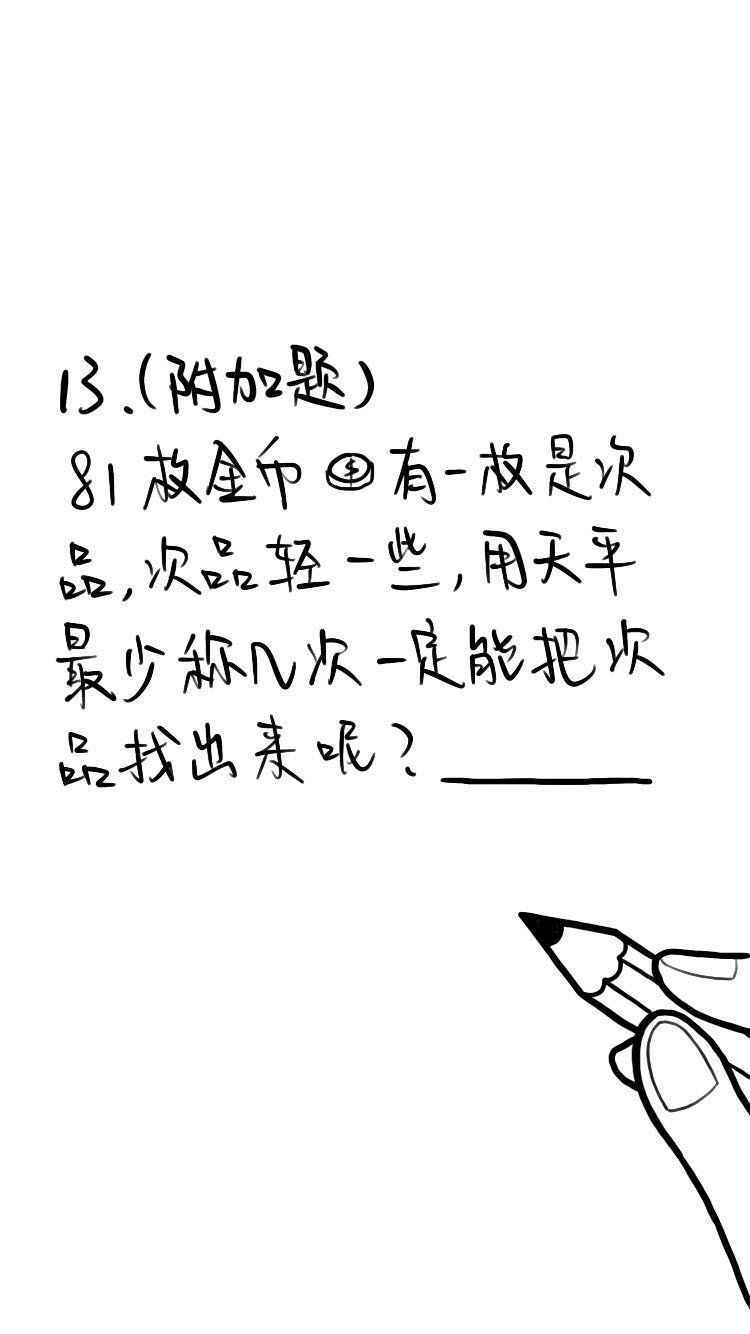 13.(附加题)
81枚金币有一枚是次
品,次品轻一些,用天平
最少称几次一定能把次
品找出来呢?